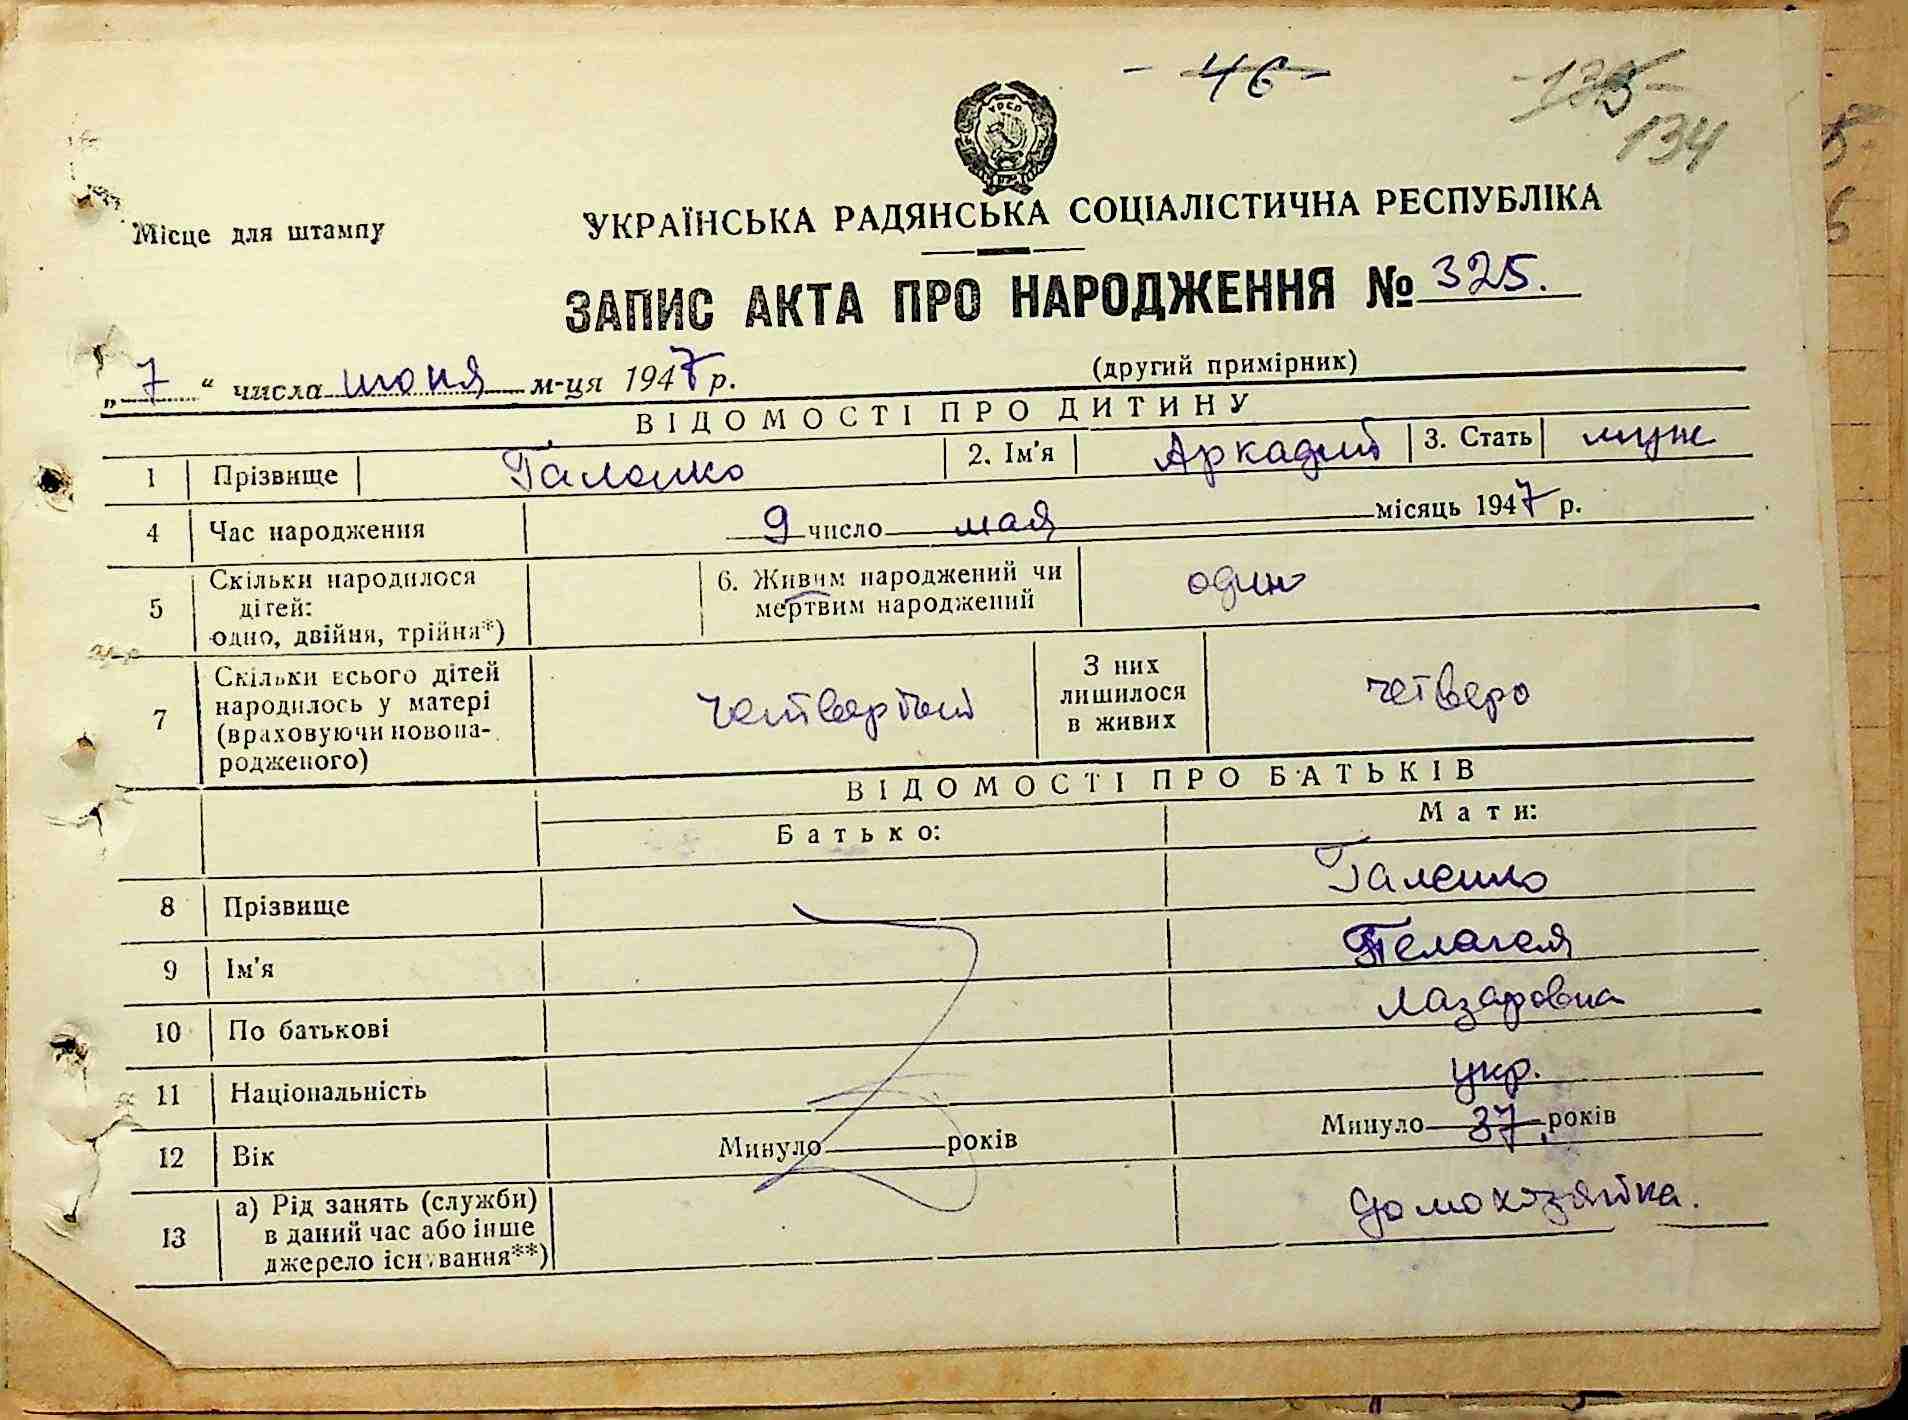 - 46 -
- 133 -
134
Місце для штампу
УКРАЇНСЬКА РАДЯНСЬКА СОЦІАЛІСТИЧНА РЕСПУБЛІКА
ЗАПИС АКТА ПРО НАРОДЖЕННЯ № 325.
„ 7 “ числа июня м-ця 1947 р. (другий примірник)
ВІДОМОСТІ ПРО ДИТИНУ
1 Прізвище Галенко 2. Ім'я Аркадий 3. Стать муж
4 Час народження 9 число мая місяць 1947 р.
5 Скільки народилося дітей: одно, двійня, трійня*) 6. Живим народжений чи мертвим народжений один
7 Скільки всього дітей народилось у матері (враховуючи новонародженого) четвертый З них лишилося в живих четверо
ВІДОМОСТІ ПРО БАТЬКІВ
Батько: Мати:
8 Прізвище Галенко
9 Ім'я Пелагея
10 По батькові Лазаровна
11 Національність укр.
12 Вік Минуло років Минуло 37 років
13 а) Рід занять (служби) в даний час або інше джерело існування**) домохозяйка.